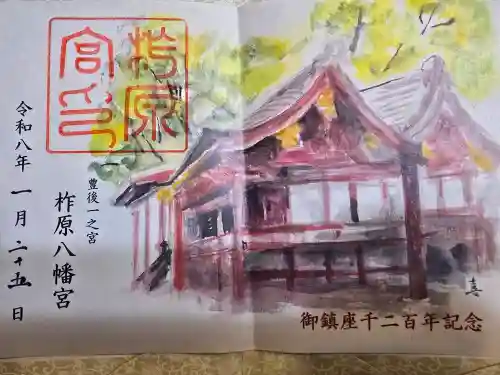 柞原
宮印
豊後一之宮
柞原八幡宮
令和八年 一月二十五日
御鎮座千二百年記念
真